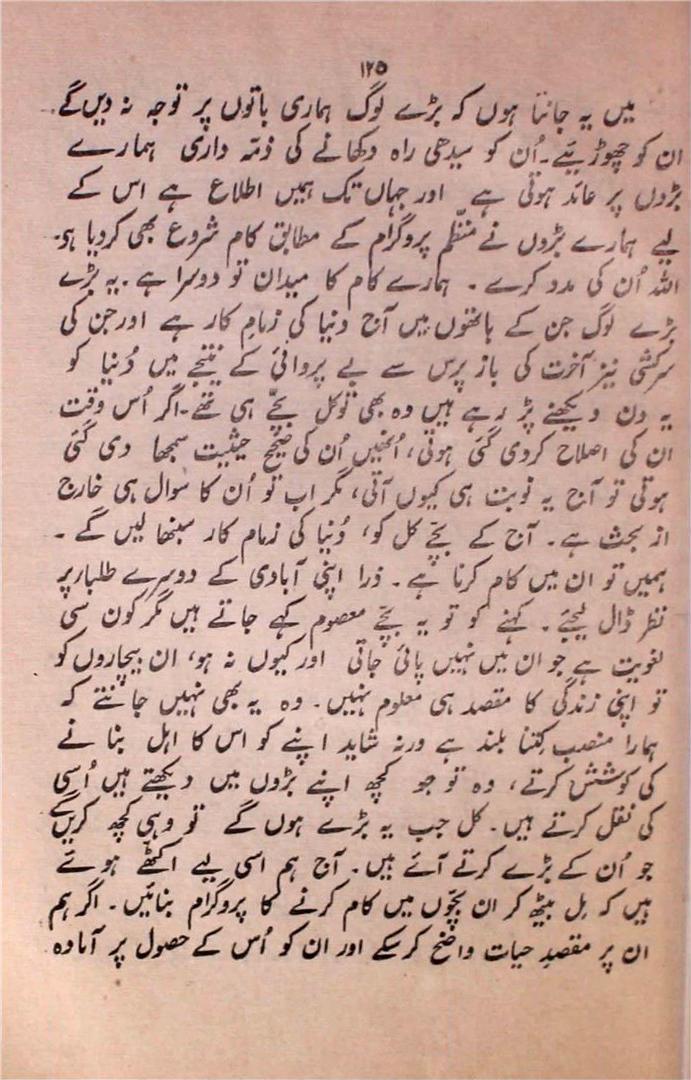 ۱۲۵
میں یہ جانتا ہوں کہ بڑے لوگ ہماری باتوں پر توجہ نہ دیں گے۔
ان کو چھوڑیئے۔ اُن کو سیدھی راہ دکھانے کی ذمّہ داری ہمارے
بڑوں پر عائد ہوتی ہے اور جہاں تک ہمیں اطلاع ہے اس کے
لیے ہمارے بڑوں نے منظّم پروگرام کے مطابق کام شروع بھی کر دیا ہو۔
اللہ اُن کی مدد کرے۔ ہمارے کام کا میدان تو دوسرا ہے۔ یہ بڑے
بڑے لوگ جن کے ہاتھوں میں آج دنیا کی زمامِ کار ہے اور جن کی
سرکشی نیز آخرت کی باز پرس سے بے پروائی کے نتیجے میں دُنیا کو
یہ دن دیکھنے پڑ رہے ہیں وہ بھی تو کل بچّے ہی تھے۔ اگر اُس وقت
ان کی اصلاح کر دی گئی ہوتی، اُنھیں اُن کی صحیح حیثیت سمجھا دی گئی
ہوتی تو آج یہ نوبت ہی کیوں آتی، مگر اب تو اُن کا سوال ہی خارج
از بحث ہے۔ آج کے بچّے کل کو، دُنیا کی زمام کار سنبھالیں گے۔
ہمیں تو ان میں کام کرنا ہے۔ ذرا اپنی آبادی کے دوسرے طلبار پر
نظر ڈال لیجئے۔ کہنے کو تو یہ بچّے معصوم کہے جاتے ہیں مگر کون سی
لغویت ہے جو ان میں نہیں پائی جاتی اور کیوں نہ ہو، ان بیچاروں کو
تو اپنی زندگی کا مقصد ہی معلوم نہیں۔ وہ یہ بھی نہیں جانتے کہ
ہمارا منصب کِتنا بلند ہے ورنہ شاید اپنے کو اس کا اہل بنا نے
کی کوشش کرتے، وہ تو جو کچھ اپنے بڑوں میں دیکھتے ہیں اُسی
کی نقل کرتے ہیں۔ کل جب یہ بڑے ہوں گے تو وہی کچھ کریں گے
جو اُن کے بڑے کرتے آئے ہیں۔ آج ہم اسی لیے اکٹھے ہوئے
ہیں کہ مِل بیٹھ کر ان بچّوں میں کام کرنے کا پروگرام بنائیں۔ اگر ہم
ان پر مقصدِ حیات واضح کر سکے اور ان کو اُس کے حصول پر آمادہ